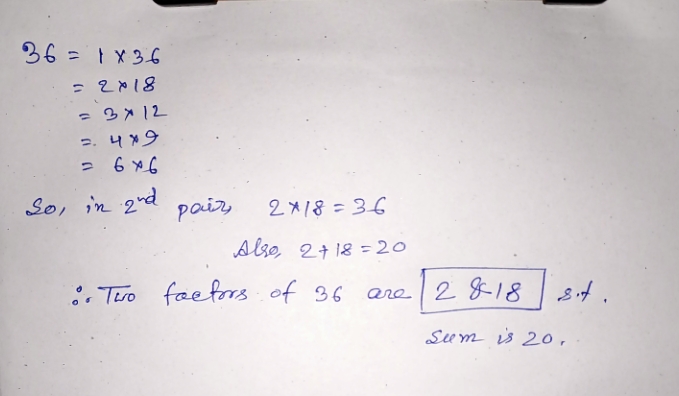 36 = 1 × 36
= 2 × 18
= 3 × 12
= 4 × 9
= 6 × 6
So, in 2nd pair, 2 × 18 = 36
Also, 2 + 18 = 20
∴ Two factors of 36 are 2 & 18 s.t.
Sum is 20.